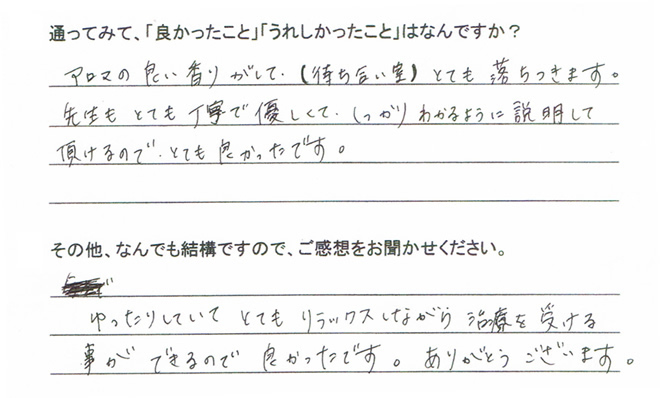 通ってみて、「良かったこと」「うれしかったこと」はなんですか？
アロマの良い香りがして、(待ち合い室)とても落ちつきます。
先生もとても丁寧で優しくて、しっかりわかるように説明して
頂けるので、とても良かったです。
その他、なんでも結構ですので、ご感想をお聞かせください。
ゆったりしていてとてもリラックスしながら治療を受ける
事ができるので良かったです。ありがとうございます。